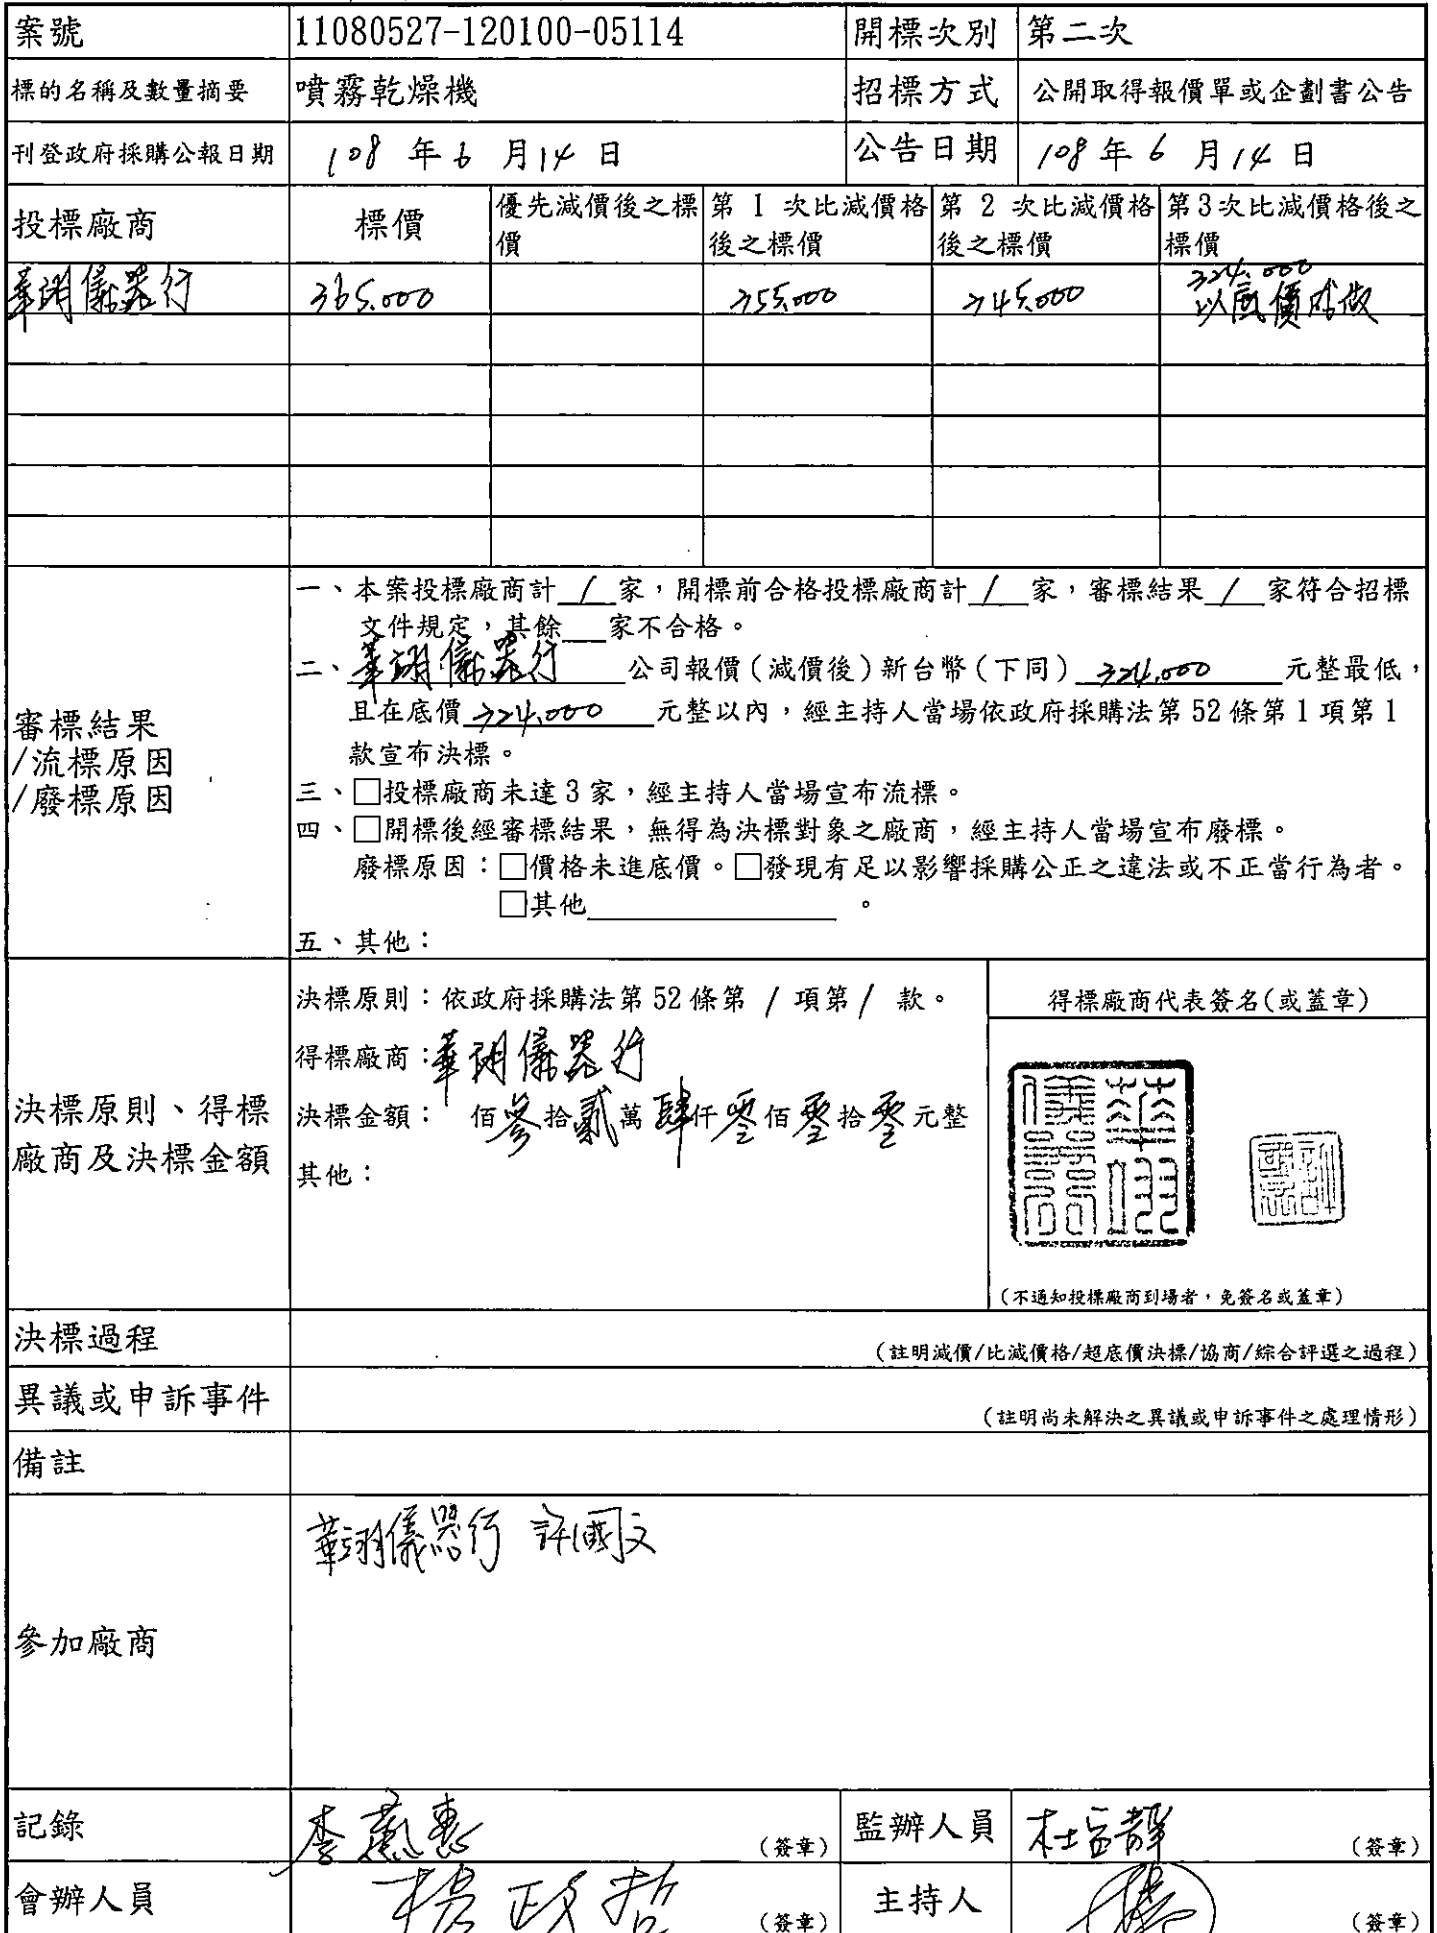 案號 11080527-120100-05114 開標次別 第二次
標的名稱及數量摘要 噴霧乾燥機 招標方式 公開取得報價單或企劃書公告
刊登政府採購公報日期 108 年 6 月 14 日 公告日期 108 年 6 月 14 日
投標廠商 標價 優先減價後之標價 第 1 次比減價格後之標價 第 2 次比減價格後之標價 第3次比減價格後之標價
華翊儀器行 365,000 355,000 345,000 324,000 以底價承做
審標結果
/流標原因
/廢標原因
一、本案投標廠商計 1 家，開標前合格投標廠商計 1 家，審標結果 1 家符合招標
文件規定，其餘 家不合格。
二、華翊儀器行 公司報價（減價後）新台幣（下同） 324,000 元整最低，
且在底價 324,000 元整以內，經主持人當場依政府採購法第 52 條第 1 項第 1
款宣布決標。
三、□投標廠商未達 3 家，經主持人當場宣布流標。
四、□開標後經審標結果，無得為決標對象之廠商，經主持人當場宣布廢標。
廢標原因：□價格未進底價。□發現有足以影響採購公正之違法或不正當行為者。
□其他 。
五、其他：
決標原則、得標
廠商及決標金額
決標原則：依政府採購法第 52 條第 1 項第 1 款。
得標廠商：華翊儀器行
決標金額： 佰參拾貳萬肆仟零佰零拾零元整
其他：
得標廠商代表簽名(或蓋章)
華翊儀器行
（不通知投標廠商到場者，免簽名或蓋章）
決標過程 （註明減價/比減價格/超底價決標/協商/綜合評選之過程）
異議或申訴事件 （註明尚未解決之異議或申訴事件之處理情形）
備註
參加廠商 華翊儀器行 許國文
記錄 李蕙惠 （簽章） 監辦人員 杜益靜 （簽章）
會辦人員 楊政哲 （簽章） 主持人 （簽章）